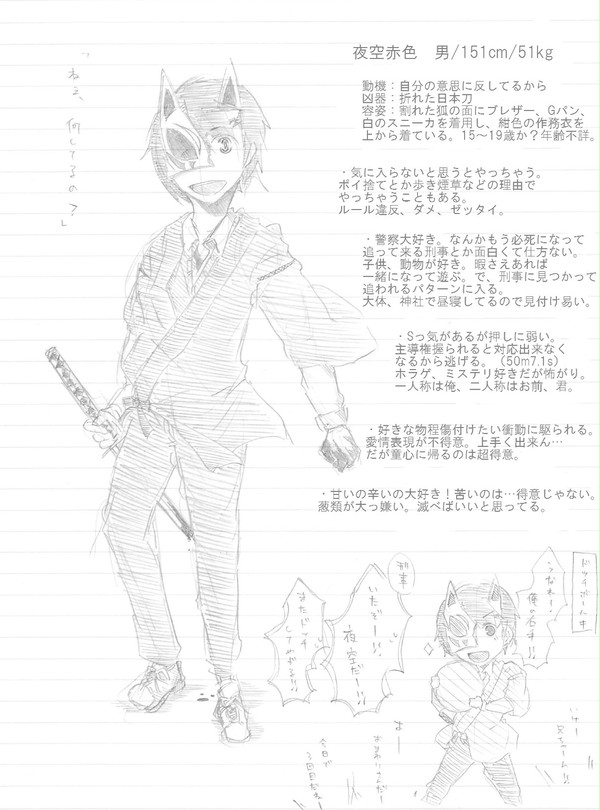 夜空赤色　男/151cm/51kg
動機：自分の意思に反してるから
凶器：折れた日本刀
容姿：割れた狐の面にブレザー、Gパン、
白のスニーカを着用し、紺色の作務衣を
上から着ている。15～19歳か？年齢不詳。
・気に入らないと思うとやっちゃう。
ポイ捨てとか歩き煙草などの理由で
やっちゃうこともある。
ルール違反、ダメ、ゼッタイ。
・警察大好き。なんかもう必死になって
追って来る刑事とか面白くて仕方ない。
子供、動物が好き。暇さえあれば
一緒になって遊ぶ。で、刑事に見つかって
追われるパターンに入る。
大体、神社で昼寝してるので見付け易い。
・Sっ気があるが押しに弱い。
主導権握られると対応出来なく
なるから逃げる。（50m7.1s）
ホラゲ、ミステリ好きだが怖がり。
一人称は俺、二人称はお前、君。
・好きな物程傷付けたい衝動に駆られる。
愛情表現が不得意。上手く出来ん…
だが童心に帰るのは超得意。
・甘いの辛いの大好き！苦いのは…得意じゃない。
葱類が大っ嫌い。滅べばいいと思ってる。
「ねぇ、
何してるの？」
ドッヂボール中
うなれー！
俺の右手!!
刑事
いたぞー!!
夜空だー!!
またドッヂ
してやがる!!
おまわりさんだー
今日で
3回目だねー